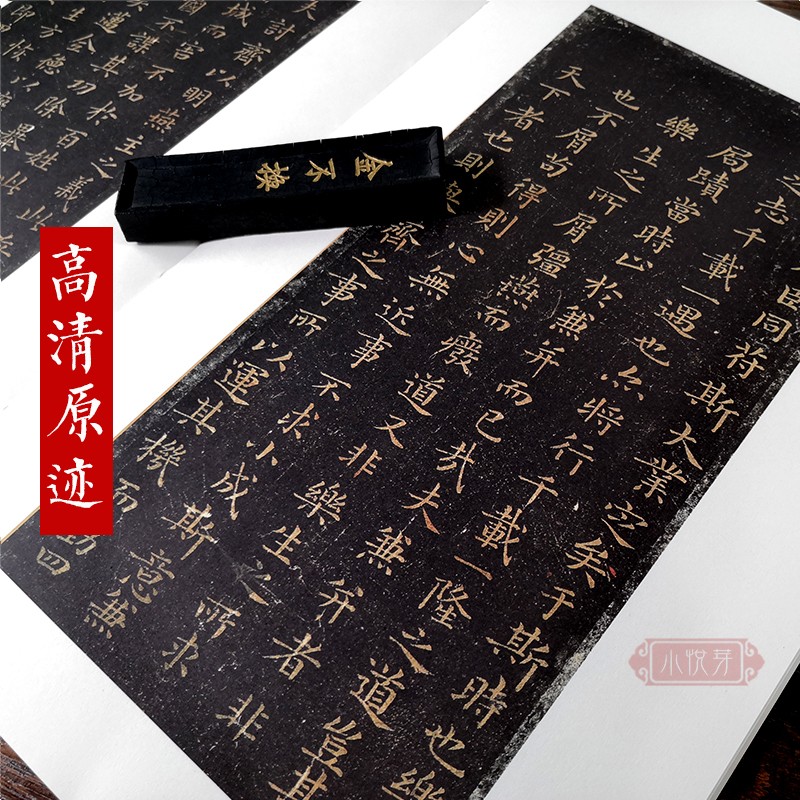 高清原迹
金不換
臣同符斯大業定矣于斯時也樂
之志千載一遇也亦將行千載一隆之道豈其
局蹟當時止於兼并而已哉夫兼并者非
樂生之所屑彊燕而廢道又非樂生之所求
也不屑苟得則心無近事不求小成斯意兼
天下者也則舉齊之事所以運其機而動四
夫討齊以明燕主之義此兵
城而害不加於百姓此
國不謀其功除暴
邁全德以
方恢
即
小悅芽